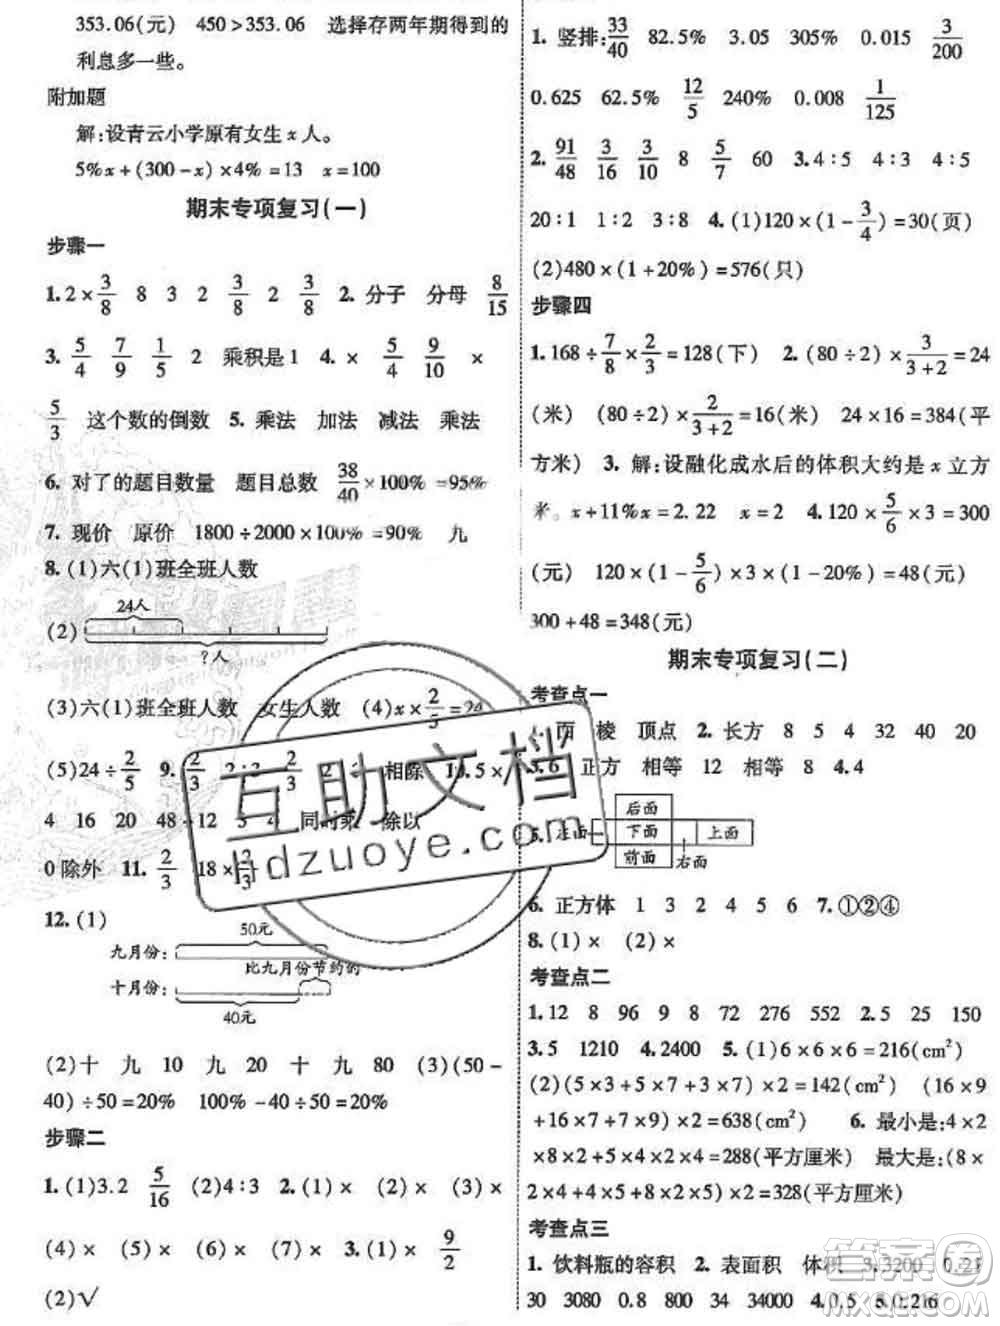 353.06(元)　450>353.06　选择存两年期得到的
利息多一些。
附加题
解:设青云小学原有女生 x 人。
5%x+(300-x)×4%=13　x=100
期末专项复习(一)
步骤一
1. 2×3/8　8　3　2　3/8　2　3/8　2. 分子　分母　8/15
3. 5/4　7/9　1/5　2　乘积是1　4. ×　5/4　9/10　×
5/3　这个数的倒数　5. 乘法　加法　减法　乘法
6. 对了的题目数量　题目总数　38/40×100%=95%
7. 现价　原价　1800÷2000×100%=90%　九
8. (1)六(1)班全班人数
24人
(2)
?人
(3)六(1)班全班人数　女生人数　(4)x×2/5=24
(5)24÷2/5　9. 2/3　2:3　2/3　2　3　相除　10. 5×
4　16　20　48　12　3　4　同时乘　除以
0除外　11. 2/3　18×2/3
12. (1)
50元
九月份:
比九月份节约的
十月份:
40元
(2)十　九　10　九　20　十　九　80　(3)(50-
40)÷50=20%　100%-40÷50=20%
步骤二
1. (1)3.2　5/16　(2)4:3　2. (1)×　(2)×　(3)×
(4)×　(5)×　(6)×　3. (1)×　9/2
(2)√
1. 竖排:33/40　82.5%　3.05　305%　0.015　3/200
0.625　62.5%　12/5　240%　0.008　1/125
2. 91/48　3/16　3/10　8　5/7　60　3. 4:5　4:3　4:5
20:1　1:2　3:8　4. (1)120×(1-3/4)=30(页)
(2)480×(1+20%)=576(只)
步骤四
1. 168÷7/8×2/3=128(下)　2. (80÷2)×3/(3+2)=24
(米)　(80÷2)×2/(3+2)=16(米)　24×16=384(平
方米)　3. 解:设融化成水后的体积大约是 x 立方
米。x+11%x=2.22　x=2　4. 120×5/6×3=300
(元)　120×(1-5/6)×3×(1-20%)=48(元)
300+48=348(元)
期末专项复习(二)
考查点一
1. 面　棱　顶点　2. 长方　8　5　4　32　40　20
3. 6　正方　相等　12　相等　8　4. 4
后面
5. 左面　下面　上面
前面　右面
6. 正方体　1　3　2　4　5　6　7. ①②④
8. (1)×　(2)×
考查点二
1. 12　8　96　9　8　72　276　552　2. 5　25　150
3. 5　1210　4. 2400　5. (1)6×6×6=216(cm²)
(2)(5×3+5×7+3×7)×2=142(cm²)　(16×9
+16×7+7×9)×2=638(cm²)　6. 最小是:4×2
×8×5-4×2×4=288(平方厘米)　最大是:(8×
2×4+5×4+8×2)×2=328(平方厘米)
考查点三
1. 饮料瓶的容积　2. 表面积　体积　3. 3200　0.21
30　3080　0.8　800　34　34000　4. 0.5　5. 0.216
互助文档
hdzuoye.com
答案圈
MXQE.COM